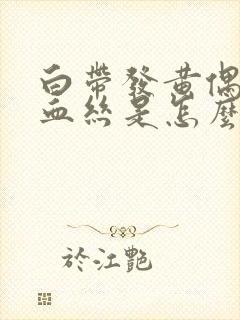 白帶發黃偶
血絲是怎麼
於江艷